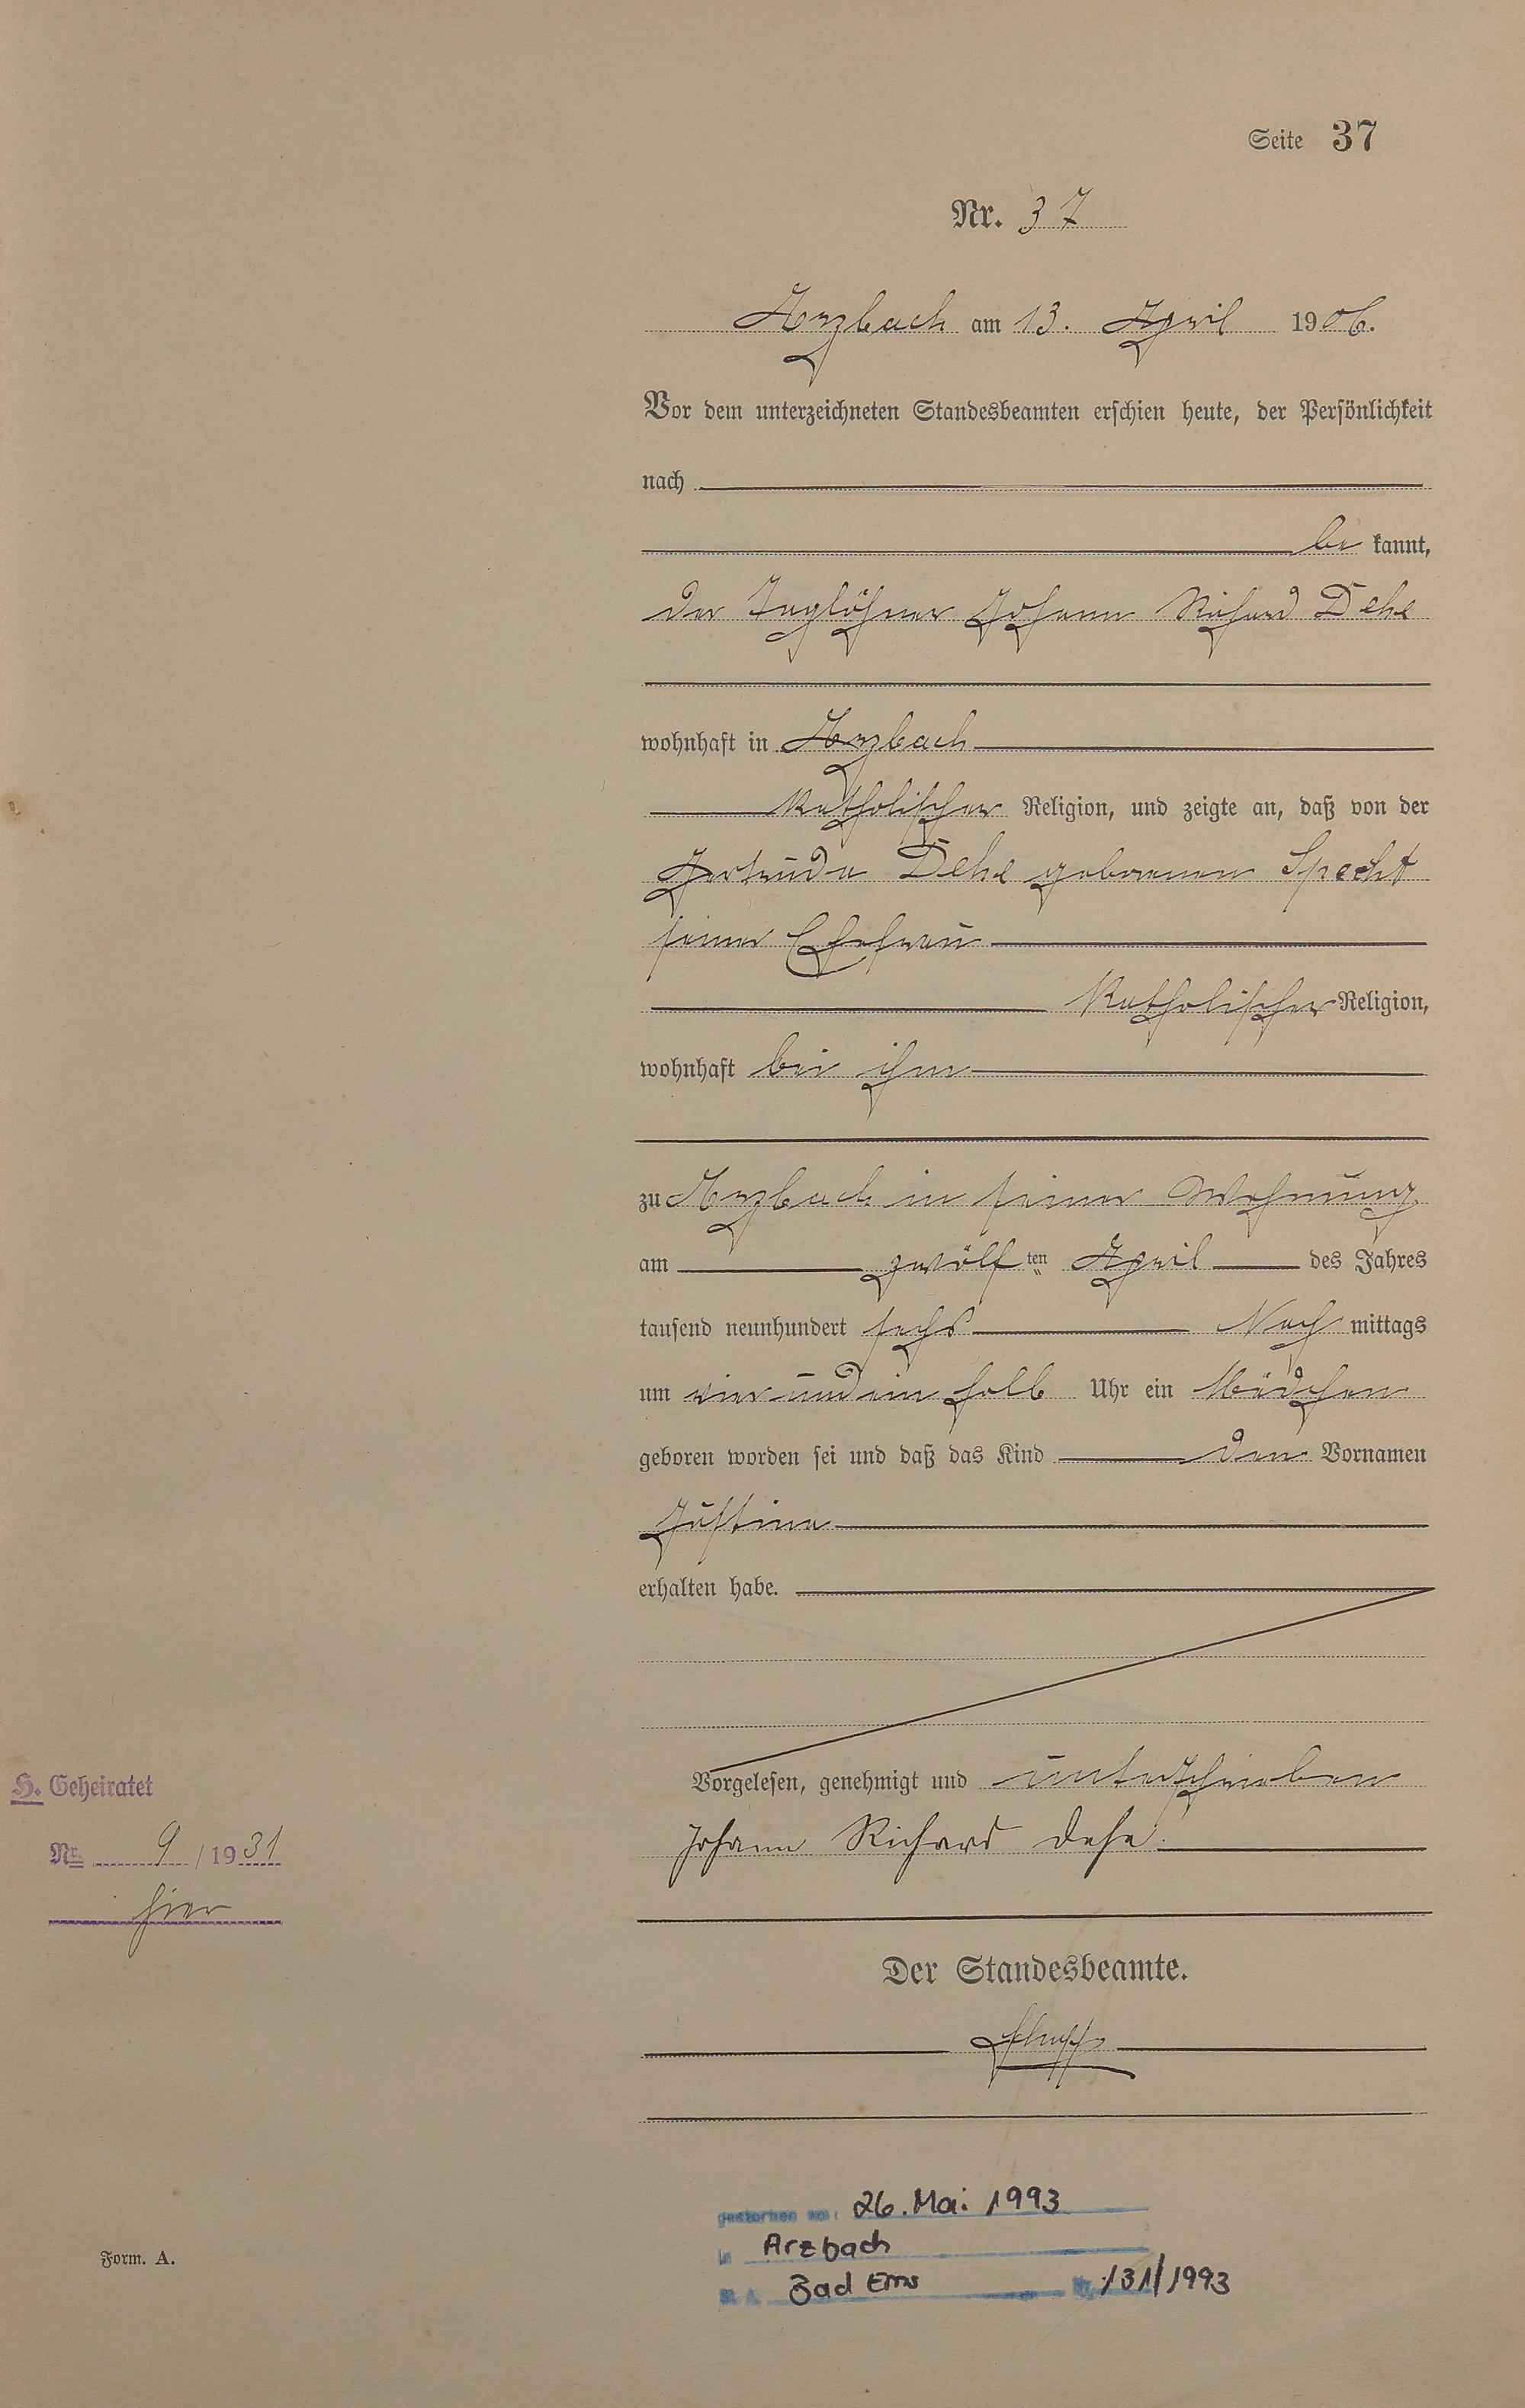 Seite 37
Nr. 37
Arzbach am 13. April 1906.
Vor dem unterzeichneten Standesbeamten erschien heute, der Persönlichkeit
nach
be kannt,
der Taglöhner Johann Richard Dehe
wohnhaft in Arzbach
katholischer Religion, und zeigte an, daß von der
Gertrude Dehe geborenen Specht
seiner Ehefrau
katholischer Religion,
wohnhaft bei ihm
zu Arzbach in seiner Wohnung
am zwölf ten April des Jahres
tausend neunhundert sechs Nach mittags
um vier und ein halb Uhr ein Mädchen
geboren worden sei und daß das Kind den Vornamen
Justina
erhalten habe.
Vorgelesen, genehmigt und unterschrieben
Johann Richard Dehe.
H. Geheiratet
Nr. 9/1931
hier
Der Standesbeamte.
gestorben am: 26. Mai 1993
in Arzbach
St. A. Bad Ems Nr. 131/1993
Form. A.